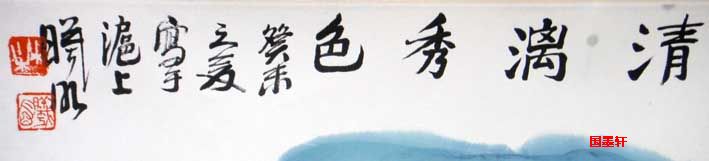 清漓秀色
癸未
之夏
写于
滬上
曦明
国墨轩